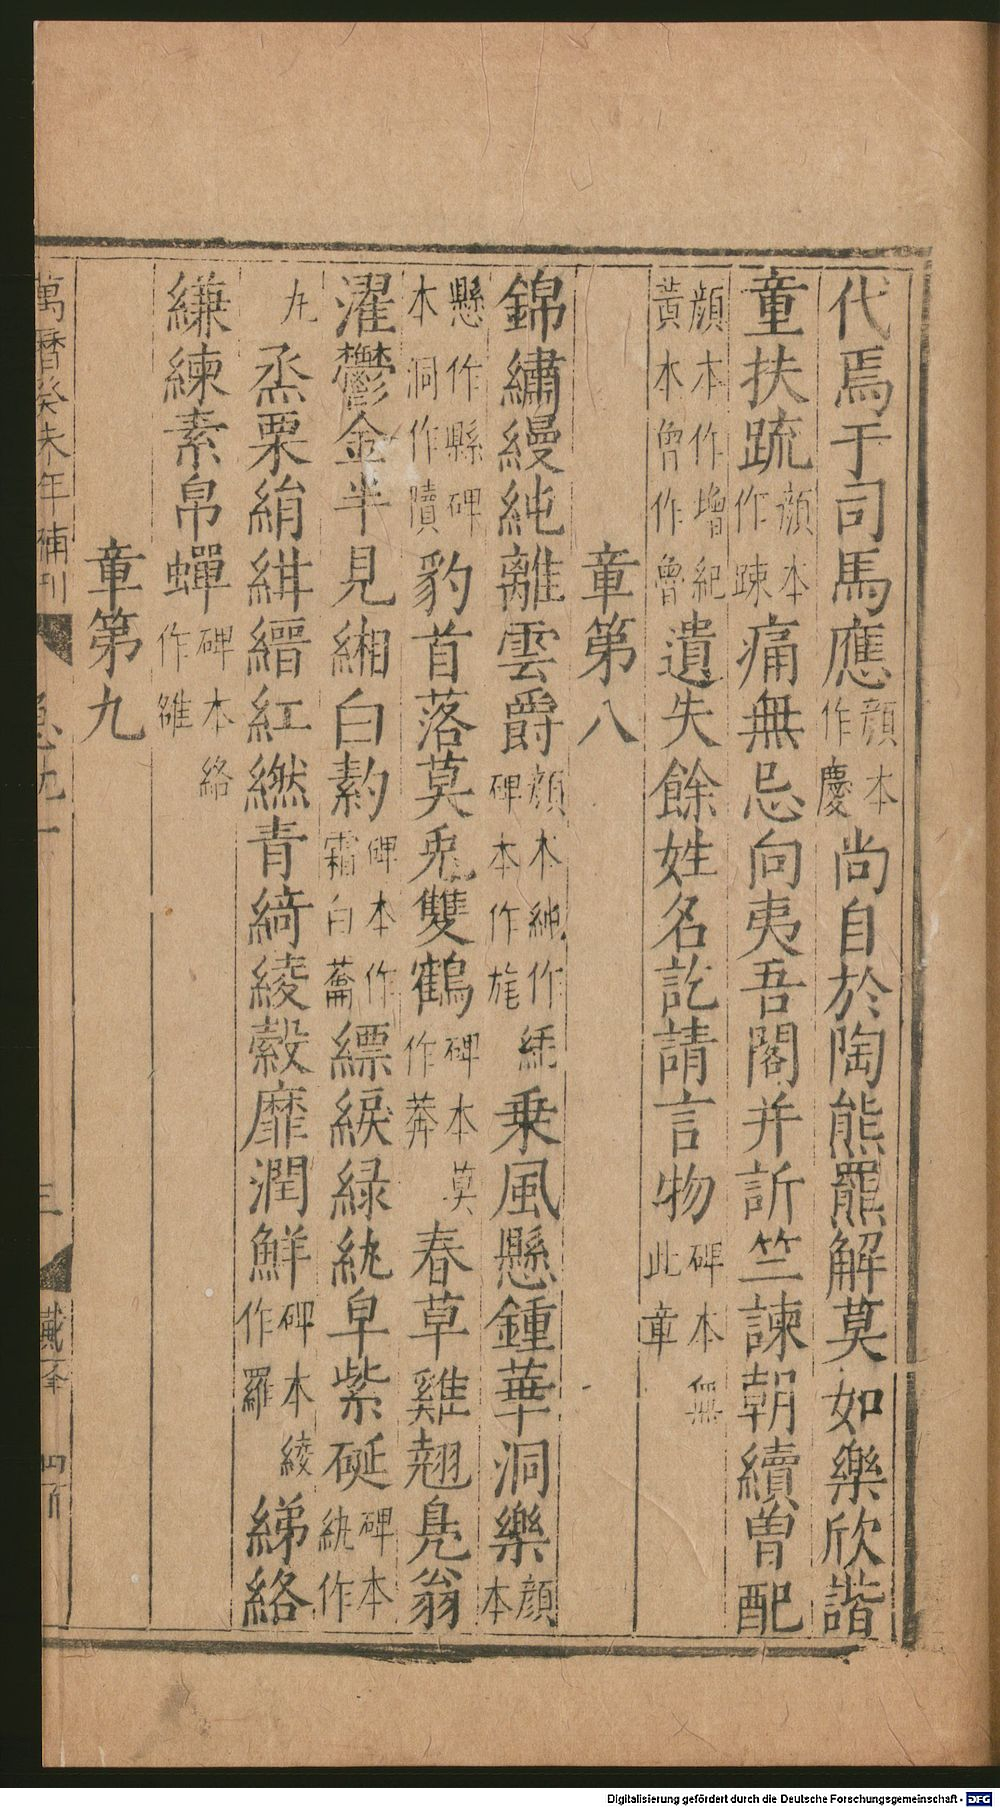 代焉于司馬應顏本作慶尚自於陶熊羆解莫如樂欣諧
童扶疏顏本作踈痛無忌向夷吾閤并訢竺諫朝續曾配
顏本作增紀黃本曾作魯遺失餘姓名訖請言物碑本無此章
章第八
錦繡縵紽離雲爵顏本純作紽碑本作旄乗風懸鍾華洞樂顏本
懸作縣碑本洞作𧸝豹首落莫兎雙鶴碑本莫作莽春草雞翹鳬翁
濯鬱金半見緗白䌤碑本作霜白蘥縹綟緑紈皁紫硟碑本紈作
九烝栗絹紺縉紅繎青綺綾縠靡潤鮮碑本綾作羅綈絡
縑練素帛蟬碑本絡作雒
章第九
萬曆癸未年補刊 急九一 三 戴峯
Digitalisierung gefördert durch die Deutsche Forschungsgemeinschaft - DFG